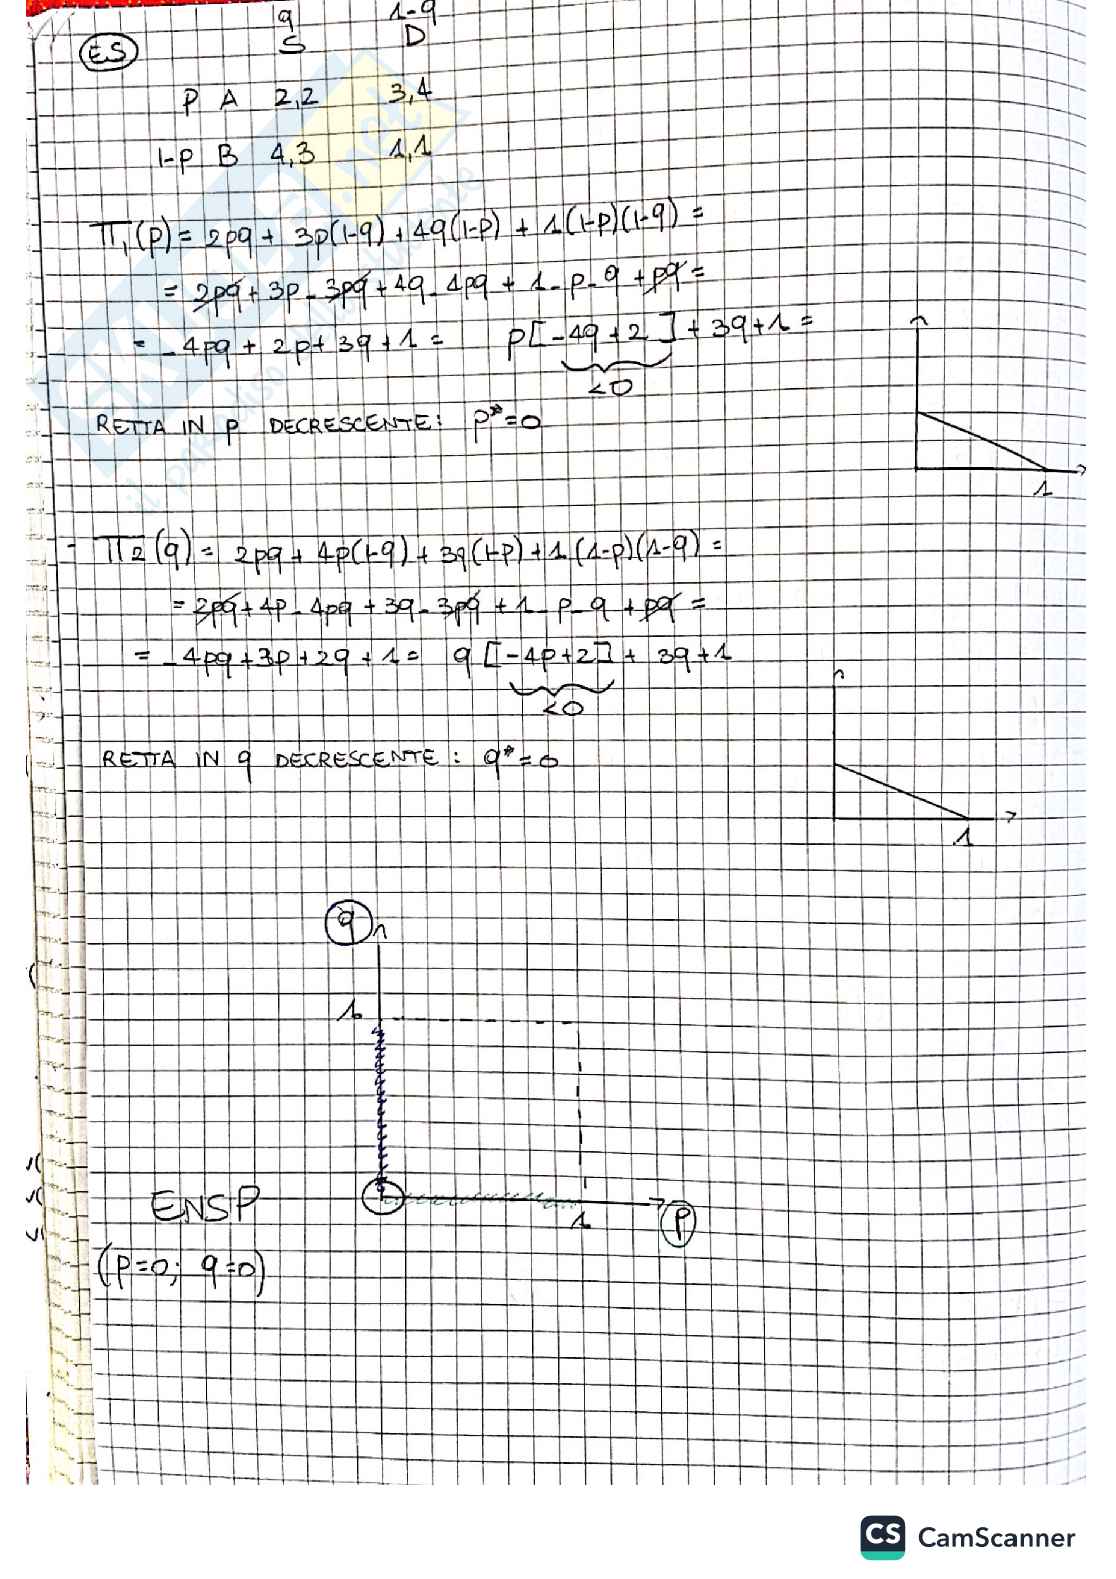 q 1-q
ES S D
P A 2,2 3,4
1-P B 4,3 1,1
π₁(p) = 2pq + 3p(1-q) + 4q(1-p) + 1(1-p)(1-q) =
= 2pq + 3p - 3pq + 4q - 4pq + 1 - p - q + pq =
= -4pq + 2p + 3q + 1 = p[-4q + 2] + 3q + 1 =
<0
RETTA IN p DECRESCENTE: p* = 0
1
π2(q) = 2pq + 4p(1-q) + 3q(1-p) + 1(1-p)(1-q) =
= 2pq + 4p - 4pq + 3q - 3pq + 1 - p - q + pq =
= -4pq + 3p + 2q + 1 = q[-4p+2] + 3q + 1
<0
RETTA IN q DECRESCENTE: q* = 0
1
q
1
ENSP
1 p
(p=0; q=0)
SKUOLA.net
il paradiso dello studente
CS CamScanner